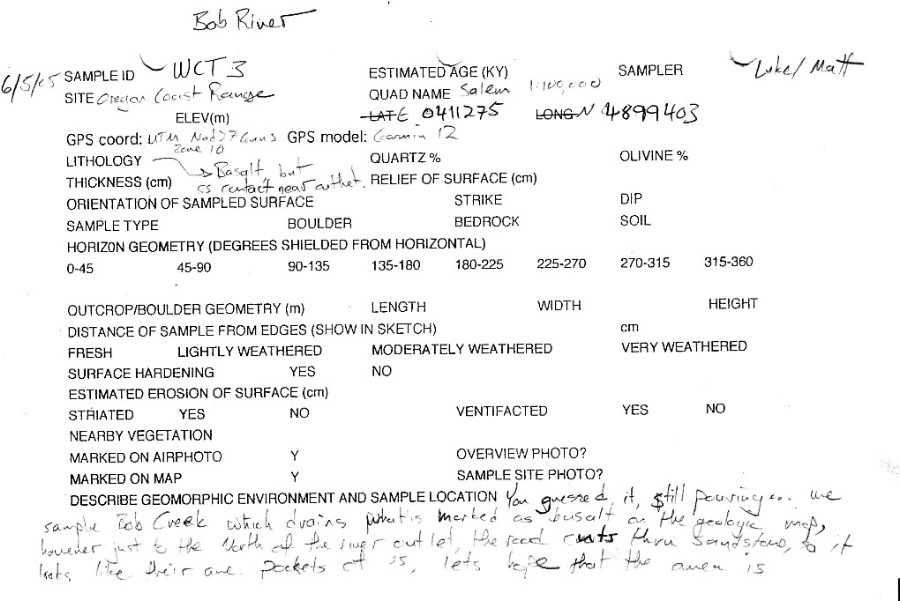 Bob River
6/5/05 SAMPLE ID WCT 3 ESTIMATED AGE (KY) SAMPLER Luke/Matt
SITE Oregon Coast Range QUAD NAME Salem 1:100,000
ELEV(m) LAT E 0411275 LONG N 4899403
GPS coord: UTM Nad27 Conus Zone 10 GPS model: Garmin 12
LITHOLOGY → Basalt, but QUARTZ % OLIVINE %
THICKNESS (cm) ss contact near outlet. RELIEF OF SURFACE (cm)
ORIENTATION OF SAMPLED SURFACE STRIKE DIP
SAMPLE TYPE BOULDER BEDROCK SOIL
HORIZON GEOMETRY (DEGREES SHIELDED FROM HORIZONTAL)
0-45 45-90 90-135 135-180 180-225 225-270 270-315 315-360
OUTCROP/BOULDER GEOMETRY (m) LENGTH WIDTH HEIGHT
DISTANCE OF SAMPLE FROM EDGES (SHOW IN SKETCH) cm
FRESH LIGHTLY WEATHERED MODERATELY WEATHERED VERY WEATHERED
SURFACE HARDENING YES NO
ESTIMATED EROSION OF SURFACE (cm)
STRIATED YES NO VENTIFACTED YES NO
NEARBY VEGETATION
MARKED ON AIRPHOTO Y OVERVIEW PHOTO?
MARKED ON MAP Y SAMPLE SITE PHOTO?
DESCRIBE GEOMORPHIC ENVIRONMENT AND SAMPLE LOCATION You guessed it, still pouring... we
sample Bob Creek which drains what is marked as basalt on the geologic map,
however just to the North of the river outlet, the road cuts thru sandstone, so it
looks like their are pockets of ss, lets hope that the area is